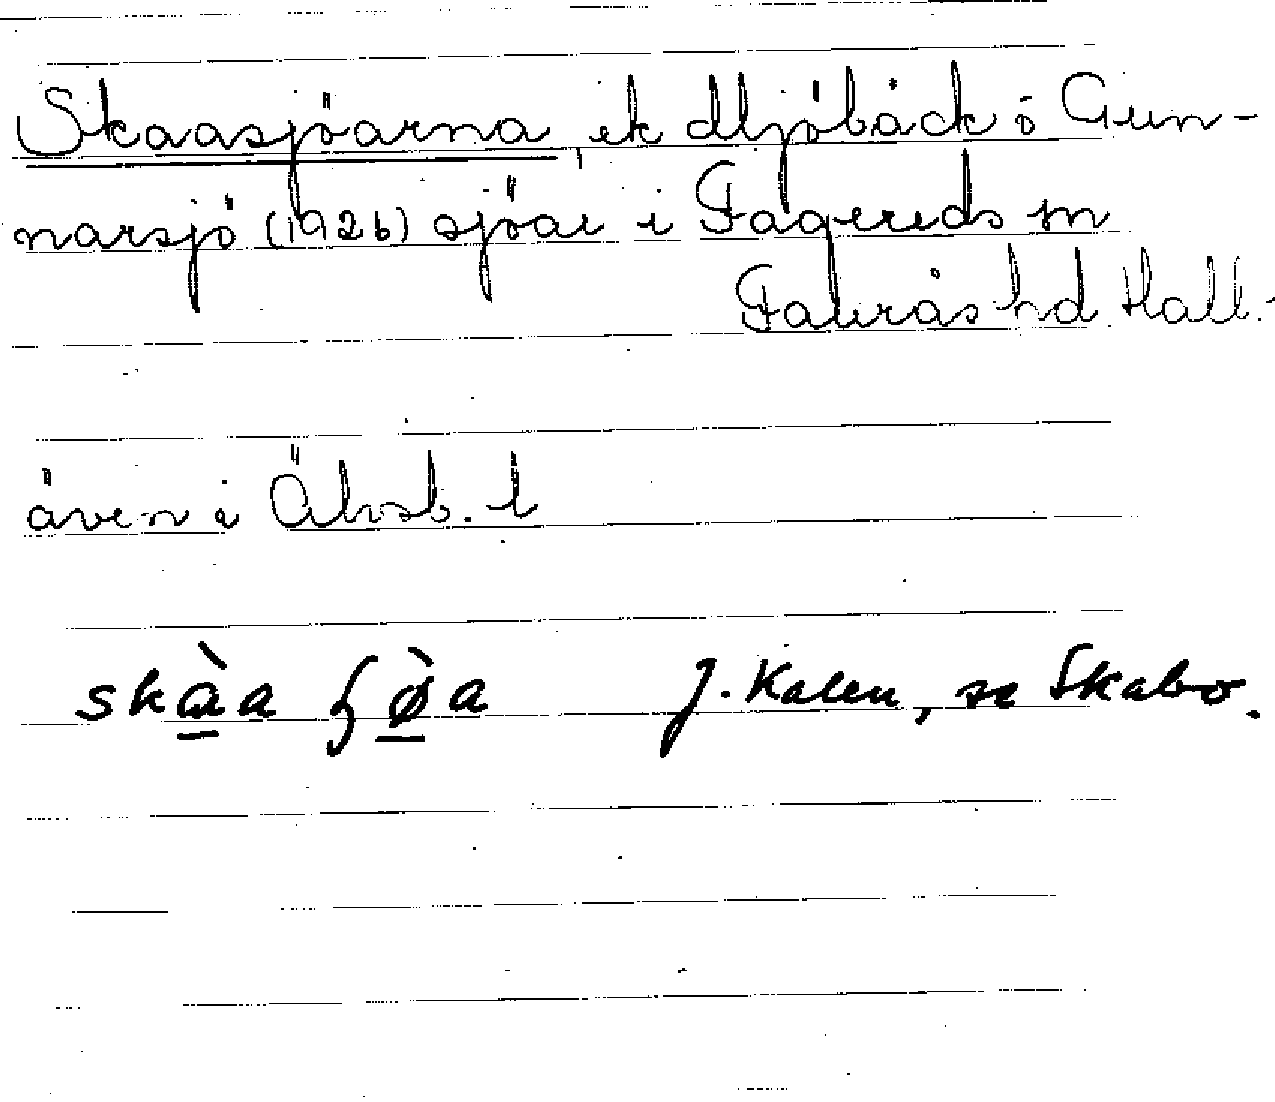 Skaasjöarna, ek Mjöbäck o Gun-
narsjö (1926) sjöar i Fagereds sn
Faurås hd Hall.
även i Älvsb. l
skàa ʂø̀a J. Kalén, se Skabo.